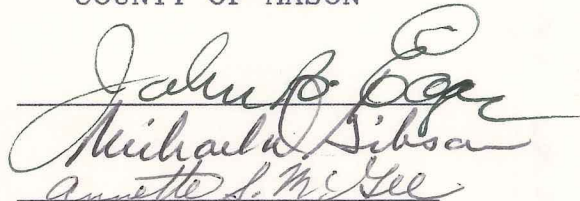 COUNTY OF MASON
John B. Eager
Michael W. Gibson
Annette S. McGee